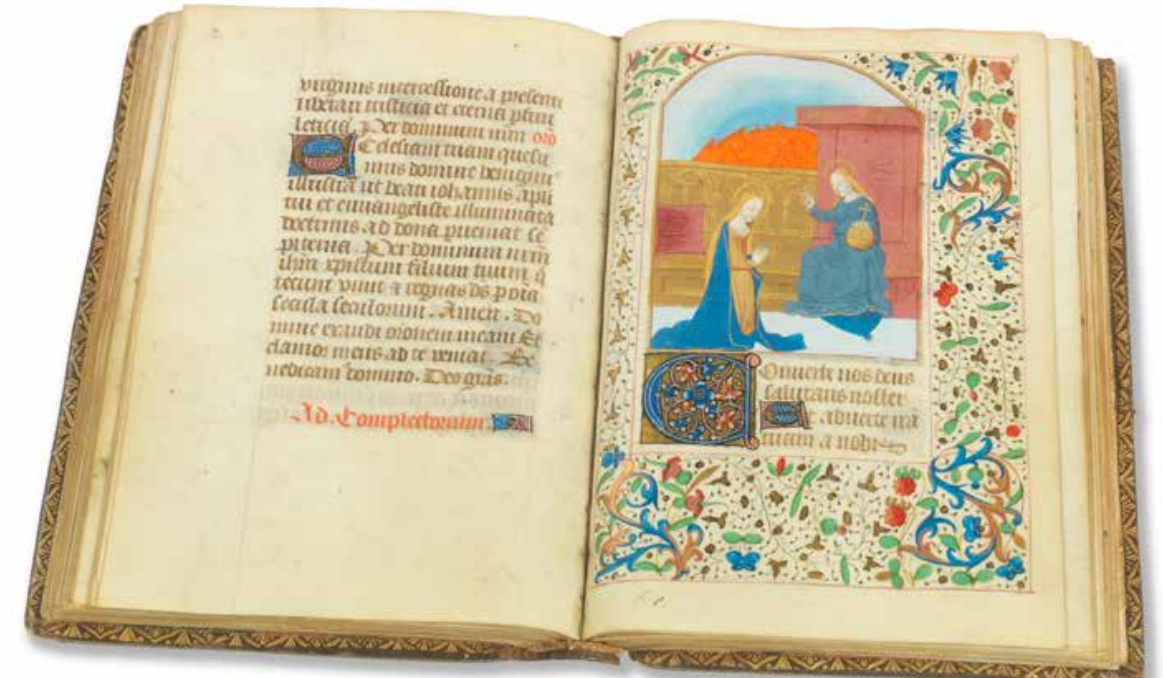 virginis intercessione a presenti
liberari tristicia et eterna pfrui
leticia. Per dominum nrm oro
Ecclesiam tuam quesu
mus domine benignus
illustra ut beati iohannis apli
tui et euuangeliste illuminata
doctrinis ad dona pueniat se
piterna. Per dominum nrm
ihm xpistum filium tuum q
tecum viuit & regnas ds p oia
secula seculorum. Amen. Do
mine exaudi oronem meam Et
clamor meus ad te veniat. Be
nedicam domino. Deo gras.
Ad. Completorium.
Conuerte nos deus
salutaris noster
Et aduerte ira
tuam a nobis